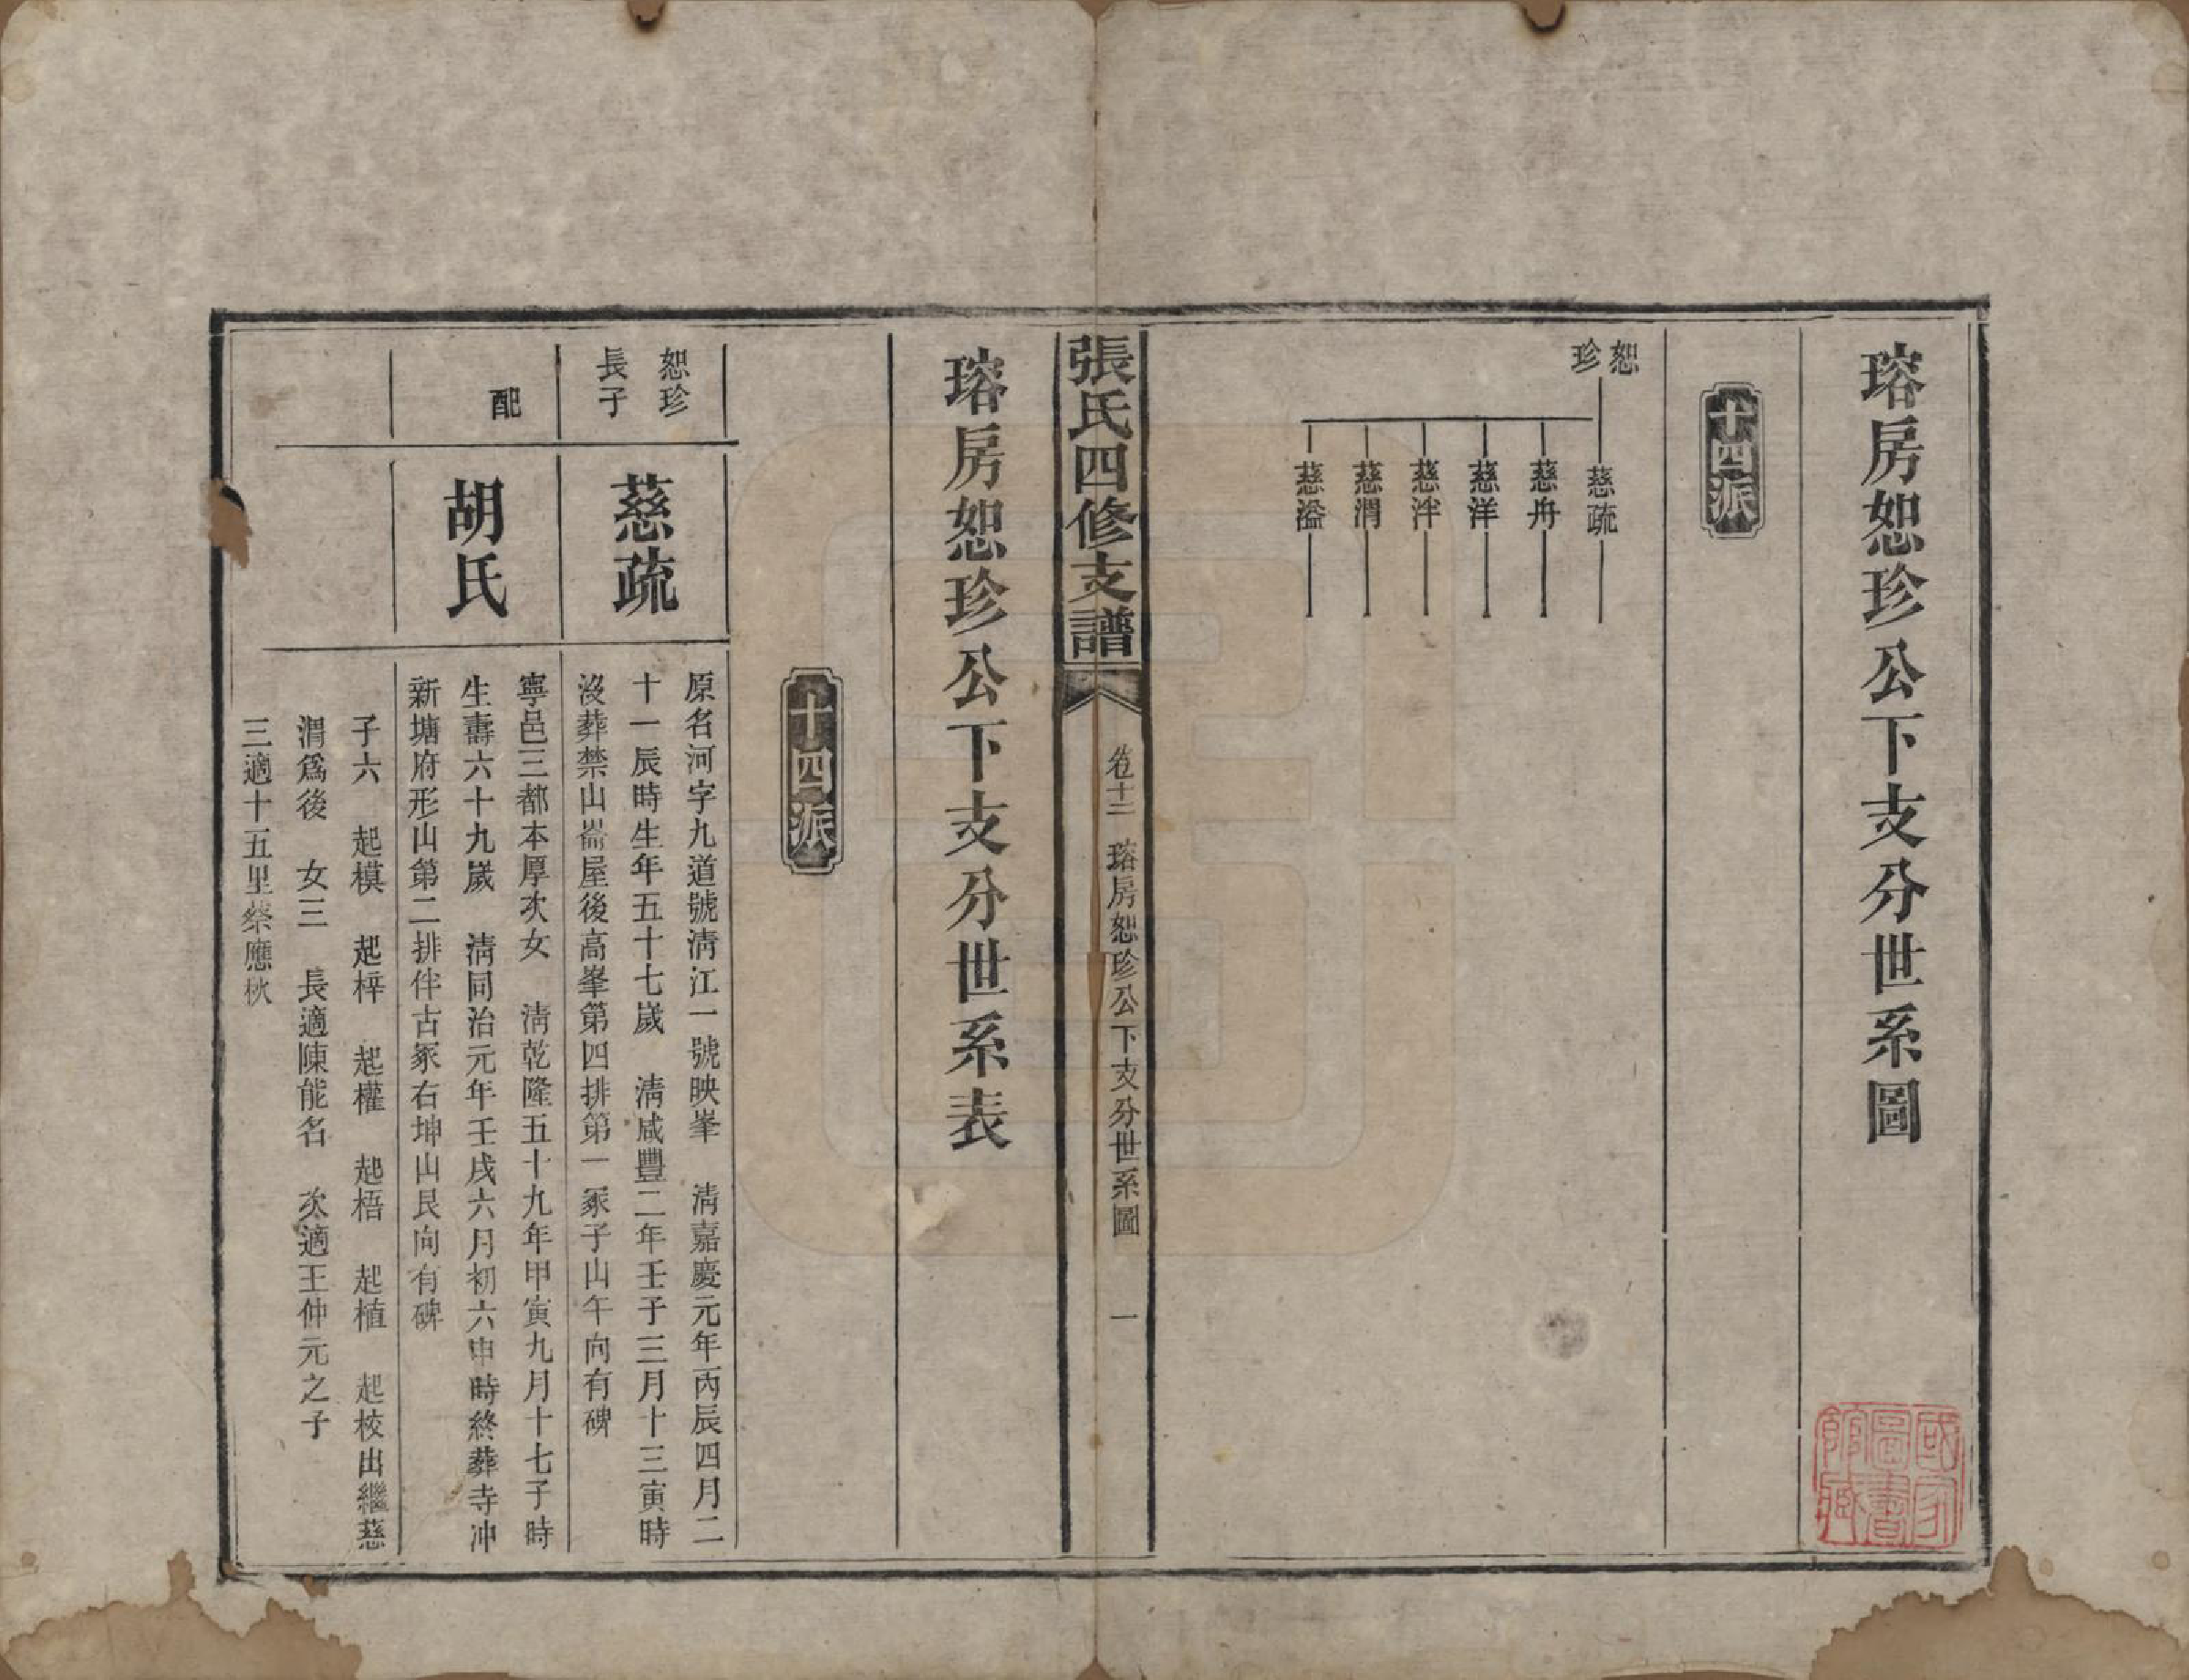 瑢房恕珍公下支分世系圖
十四派
恕珍
慈疏
慈舟
慈洋
慈泮
慈渭
慈溢
國家圖書館藏
張氏四修支譜
卷十二 瑢房恕珍公下支分世系圖 一
瑢房恕珍公下支分世系表
十四派
恕珍
長子
慈疏
原名河字九道號淸江一號映峯 淸嘉慶元年丙辰四月二
十一辰時生年五十七歲 淸咸豐二年壬子三月十三寅時
沒葬禁山崙屋後高峯第四排第一冢子山午向有碑
配
胡氏
寧邑三都本厚次女 淸乾隆五十九年甲寅九月十七子時
生壽六十九歲 淸同治元年壬戌六月初六申時終葬寺冲
新塘府形山第二排伴古冢右坤山艮向有碑
子六 起模 起梓 起權 起梧 起植 起校出繼慈
渭爲後 女三 長適陳能名 次適王仲元之子
三適十五里蔡應秋